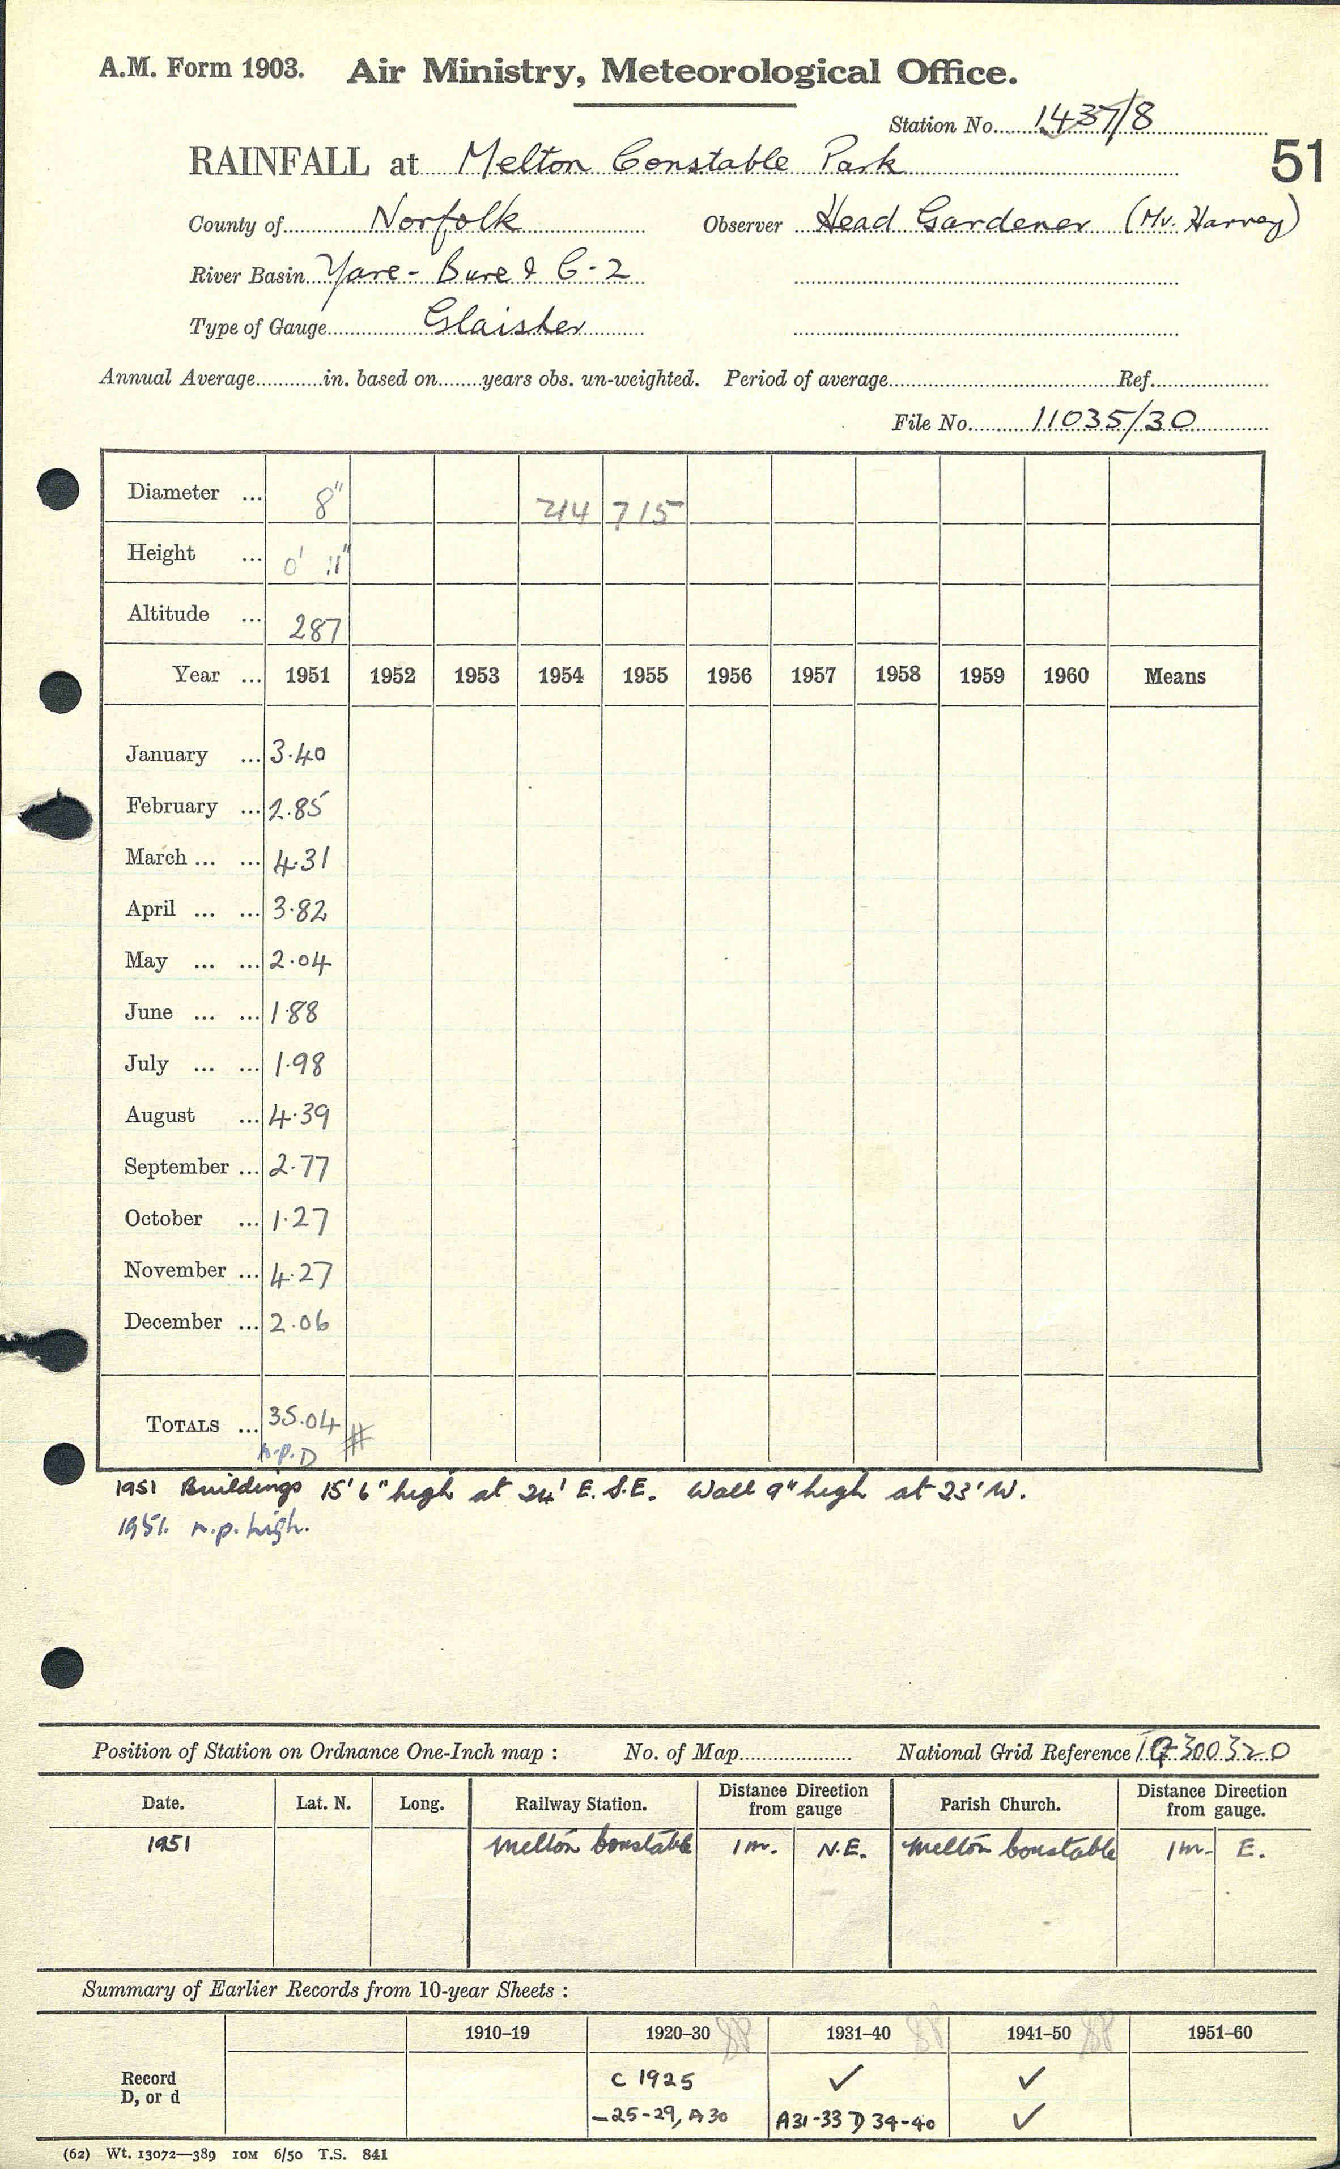 A.M. Form 1903. Air Ministry, Meteorological Office.
Station No. 1437/8
51
RAINFALL at Melton Constable Park
County of Norfolk Observer Head Gardener (Mr. Harvey)
River Basin Yare - Bure & C-2
Type of Gauge Glaisher
Annual Average in. based on years obs. un-weighted. Period of average Ref.
File No. 11035/30
Diameter ... 8" 714 715
Height ... 0' 11"
Altitude ... 287
Year ... 1951 1952 1953 1954 1955 1956 1957 1958 1959 1960 Means
January ... 3.40
February ... 2.85
March ... ... 4.31
April ... ... 3.82
May ... ... 2.04
June ... ... 1.88
July ... ... 1.98
August ... 4.39
September ... 2.77
October ... 1.27
November ... 4.27
December ... 2.06
TOTALS ... 35.04 #
n.p.D
1951 Buildings 15'6" high at 24' E.S.E. Wall 9" high at 23' W.
1951. n.p. high.
Position of Station on Ordnance One-Inch map : No. of Map National Grid Reference 300320
Date. Lat. N. Long. Railway Station. Distance Direction from gauge Parish Church. Distance Direction from gauge.
1951 Melton Constable 1m. N.E. Melton Constable 1m. E.
Summary of Earlier Records from 10-year Sheets :
1910–19 1920–30 1931–40 1941–50 1951–60
Record C 1925 ✓ ✓
D, or d –25-29, A30 A31-33 D 34-40 ✓
(62) Wt. 13072—389 10M 6/50 T.S. 841